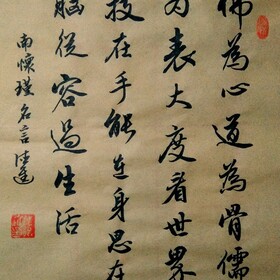 佛為心道為骨儒
为表大度看世界
技在手能在身思在
腦從容過生活
南懷瑾名言